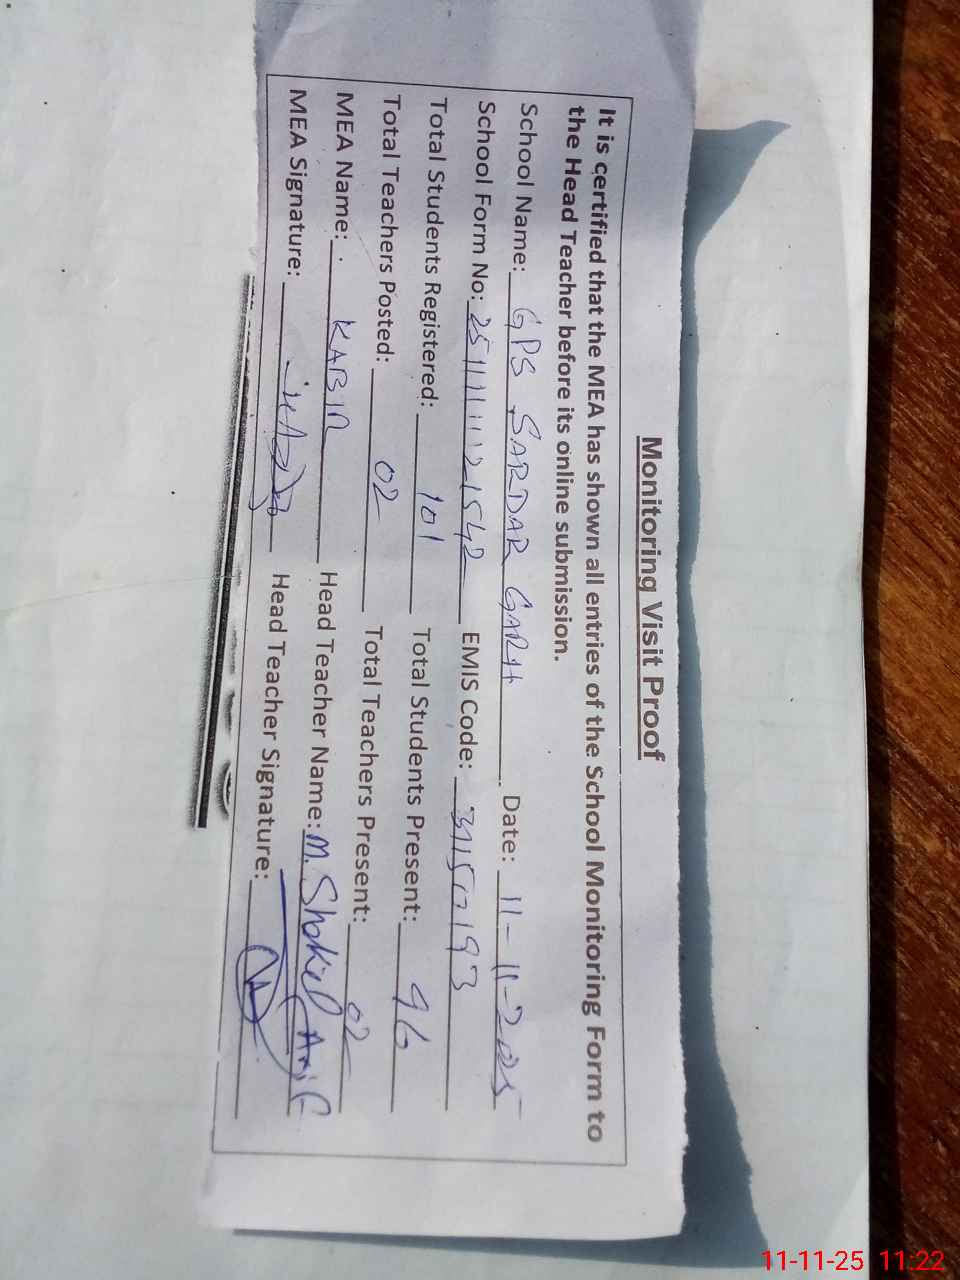 Monitoring Visit Proof
It is certified that the MEA has shown all entries of the School Monitoring Form to
the Head Teacher before its online submission.
School Name: GPS SARDAR GARH Date: 11-11-2025
School Form No: 25111111121542 EMIS Code:
Total Students Registered: 101 Total Students Present: 96
Total Teachers Posted: 02 Total Teachers Present: 02
MEA Name: KABIR Head Teacher Name: M. Shakeel Arif
MEA Signature: Head Teacher Signature:
11-11-25 11:22